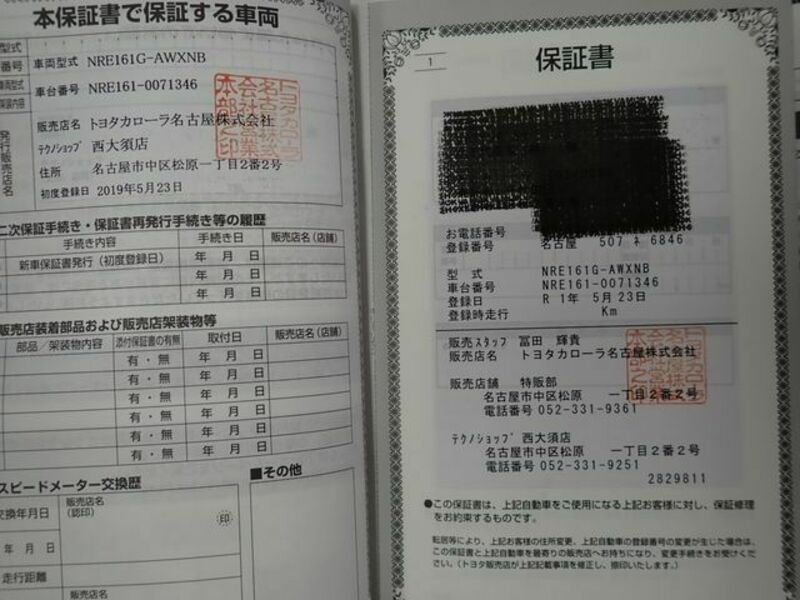 本保証書で保証する車両
型式
番号
車両型式 NRE161G-AWXNB
車台番号 NRE161-0071346
販売店名 トヨタカローラ名古屋株式会社
テクノショップ 西大須店
住所 名古屋市中区松原一丁目2番2号
初度登録日 2019年5月23日
発行販売店名
二次保証手続き・保証書再発行手続き等の履歴
手続き内容 手続き日 販売店名(店舗)
新車保証書発行(初度登録日) 年 月 日
年 月 日
年 月 日
販売店装着部品および販売店架装物等
部品/架装物内容 添付保証書の有無 取付日 販売店名(店舗)
有・無 年 月 日
有・無 年 月 日
有・無 年 月 日
有・無 年 月 日
有・無 年 月 日
スピードメーター交換歴
交換年月日 販売店名
(認印)
印
年 月 日
走行距離
販売店名
■その他
1
保証書
お電話番号
登録番号 名古屋 507 ネ 6846
型 式 NRE161G-AWXNB
車台番号 NRE161-0071346
登録日 R 1年 5月23日
登録時走行 Km
販売スタッフ 冨田 輝貴
販売店名 トヨタカローラ名古屋株式会社
販売店舗 特販部
名古屋市中区松原 一丁目2番2号
電話番号 052-331-9361
テクノショップ 西大須店
名古屋市中区松原 一丁目2番2号
電話番号 052-331-9251
2829811
●この保証書は、上記自動車をご使用になる上記お客様に対し、保証修理
をお約束するものです。
転居等により、上記お客様の住所変更、上記自動車の登録番号の変更が生じた場合は、
この保証書と上記自動車を最寄りの販売店へお持ちになり、変更手続きをお受けくだ
さい。(トヨタ販売店が上記記載事項を修正し、捺印いたします。)